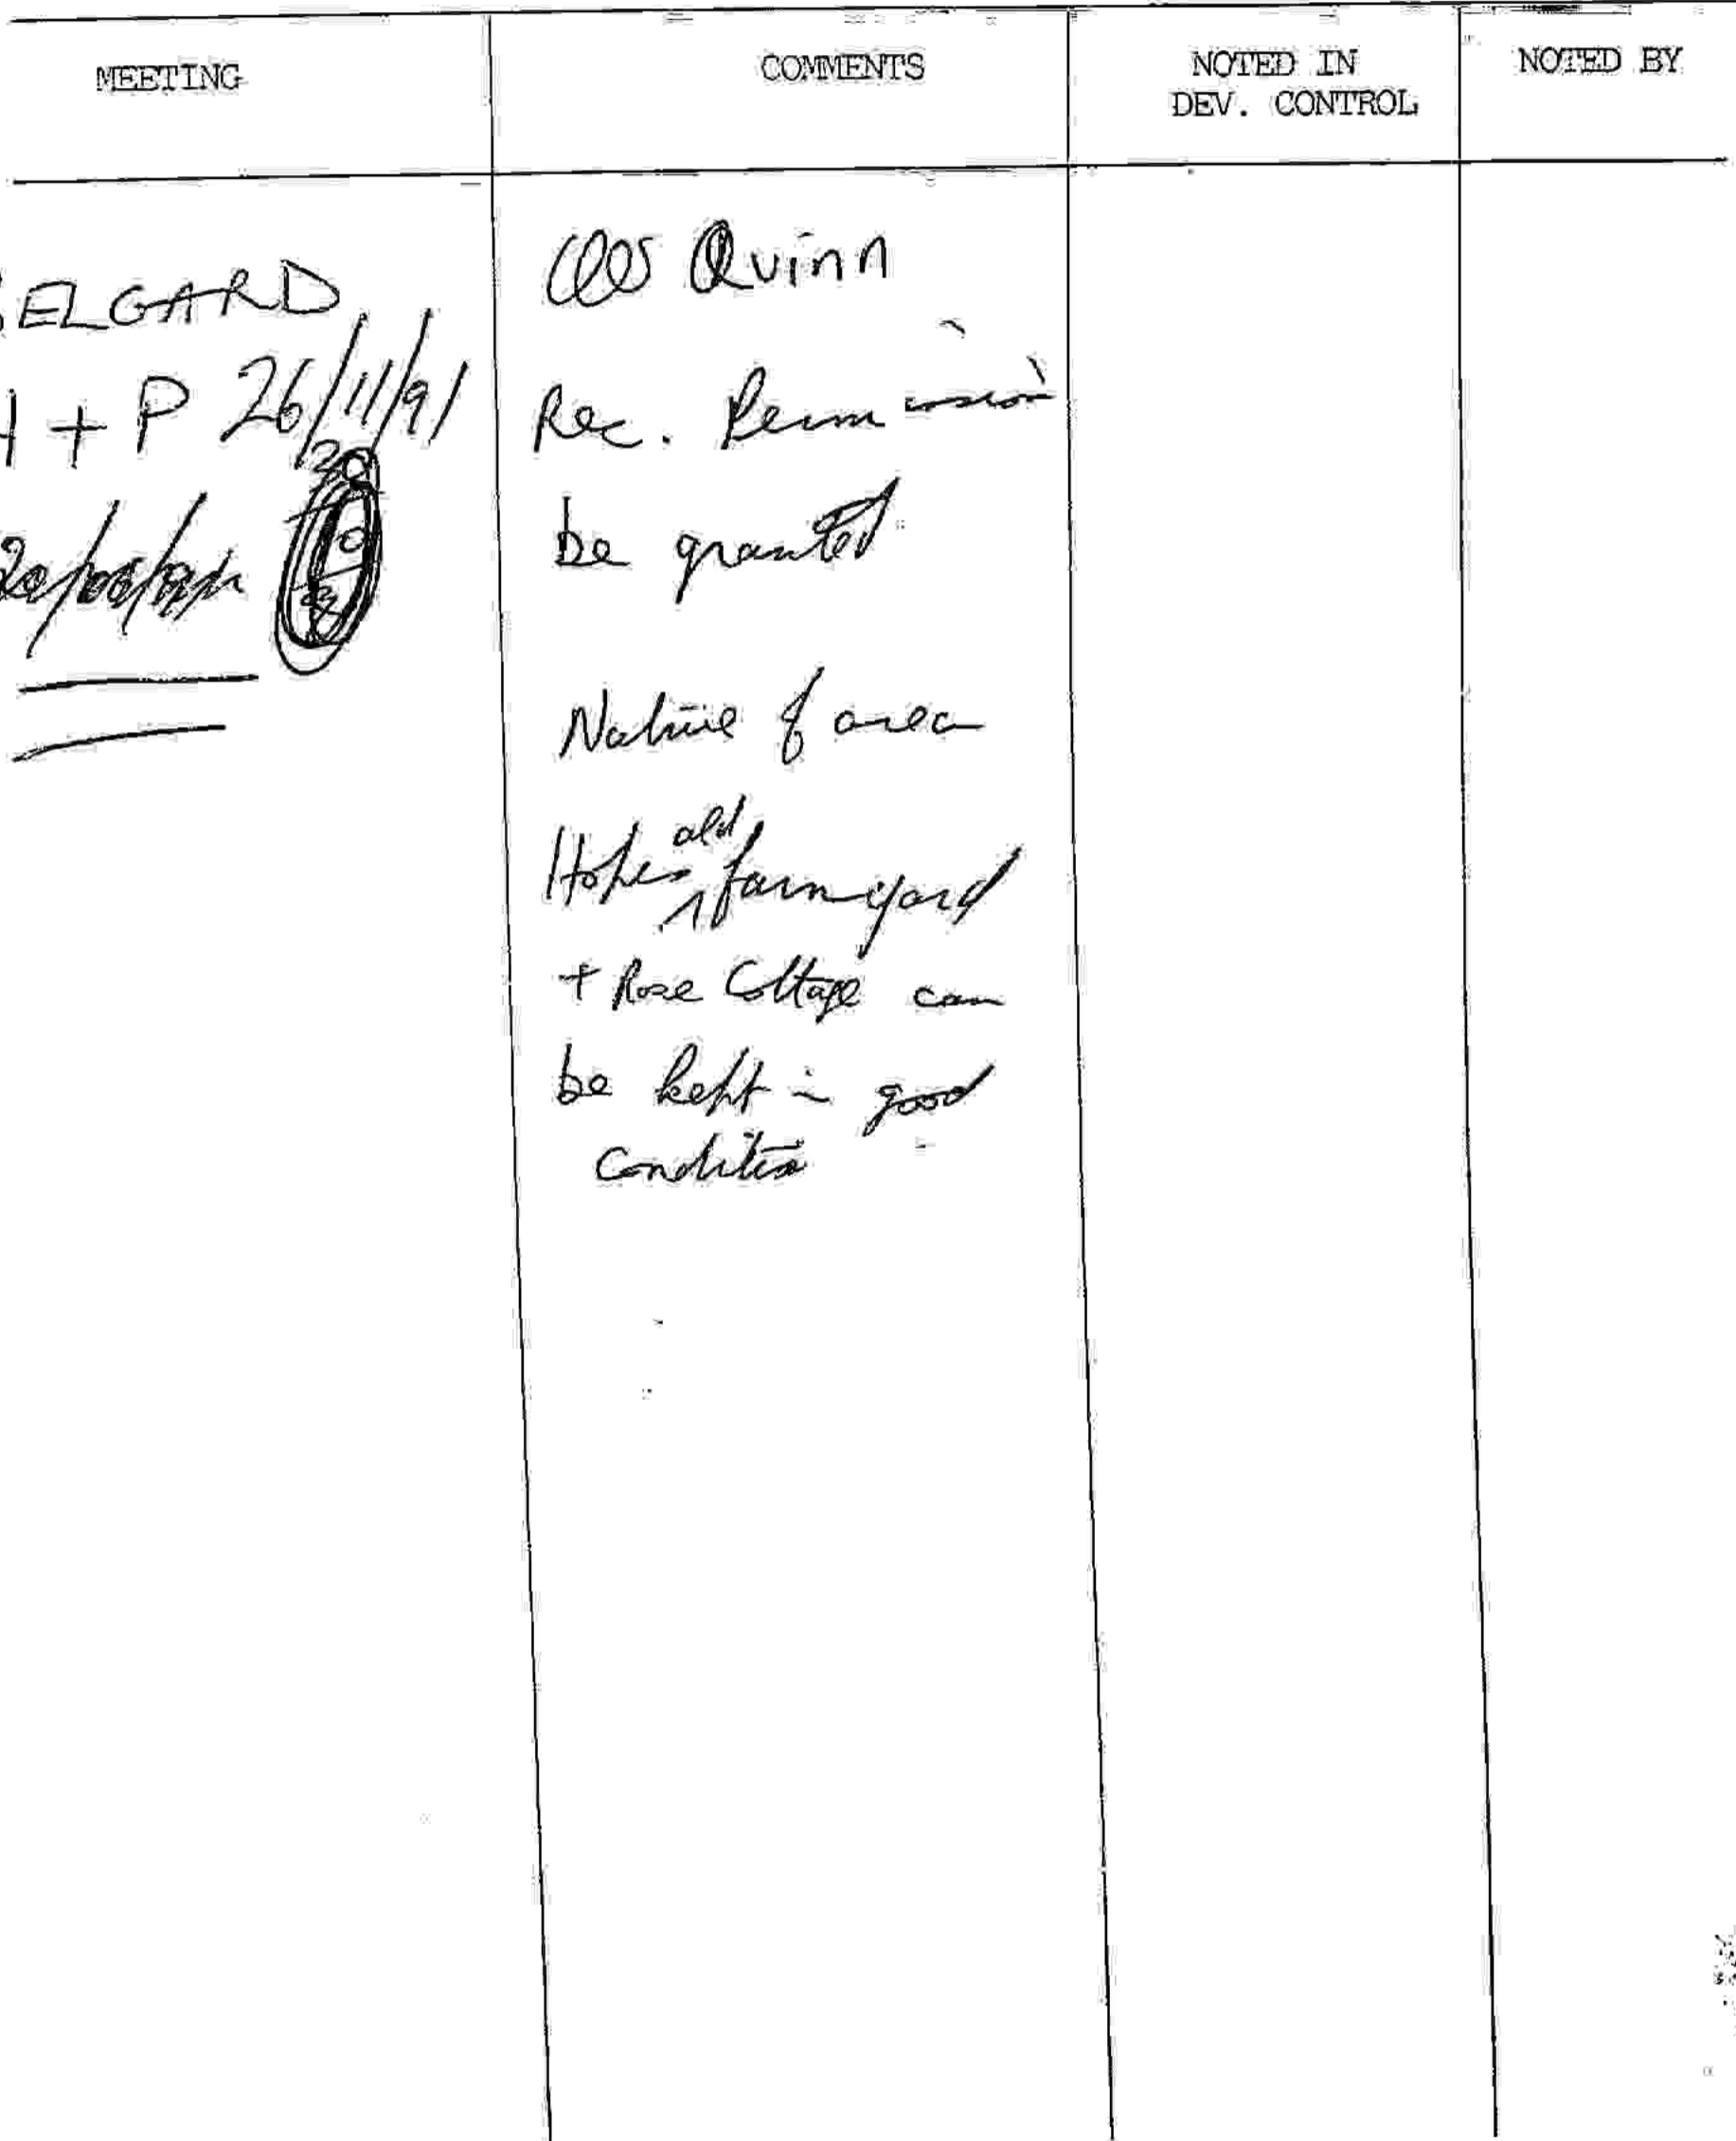 MEETING
COMMENTS
NOTED IN
DEV. CONTROL
NOTED BY
BELGARD
H + P 26/11/91
Quinn
Rec. Permission
be granted
Nature of area
Hopes old farmyard
+ Rose Cottage can
be kept in good
condition